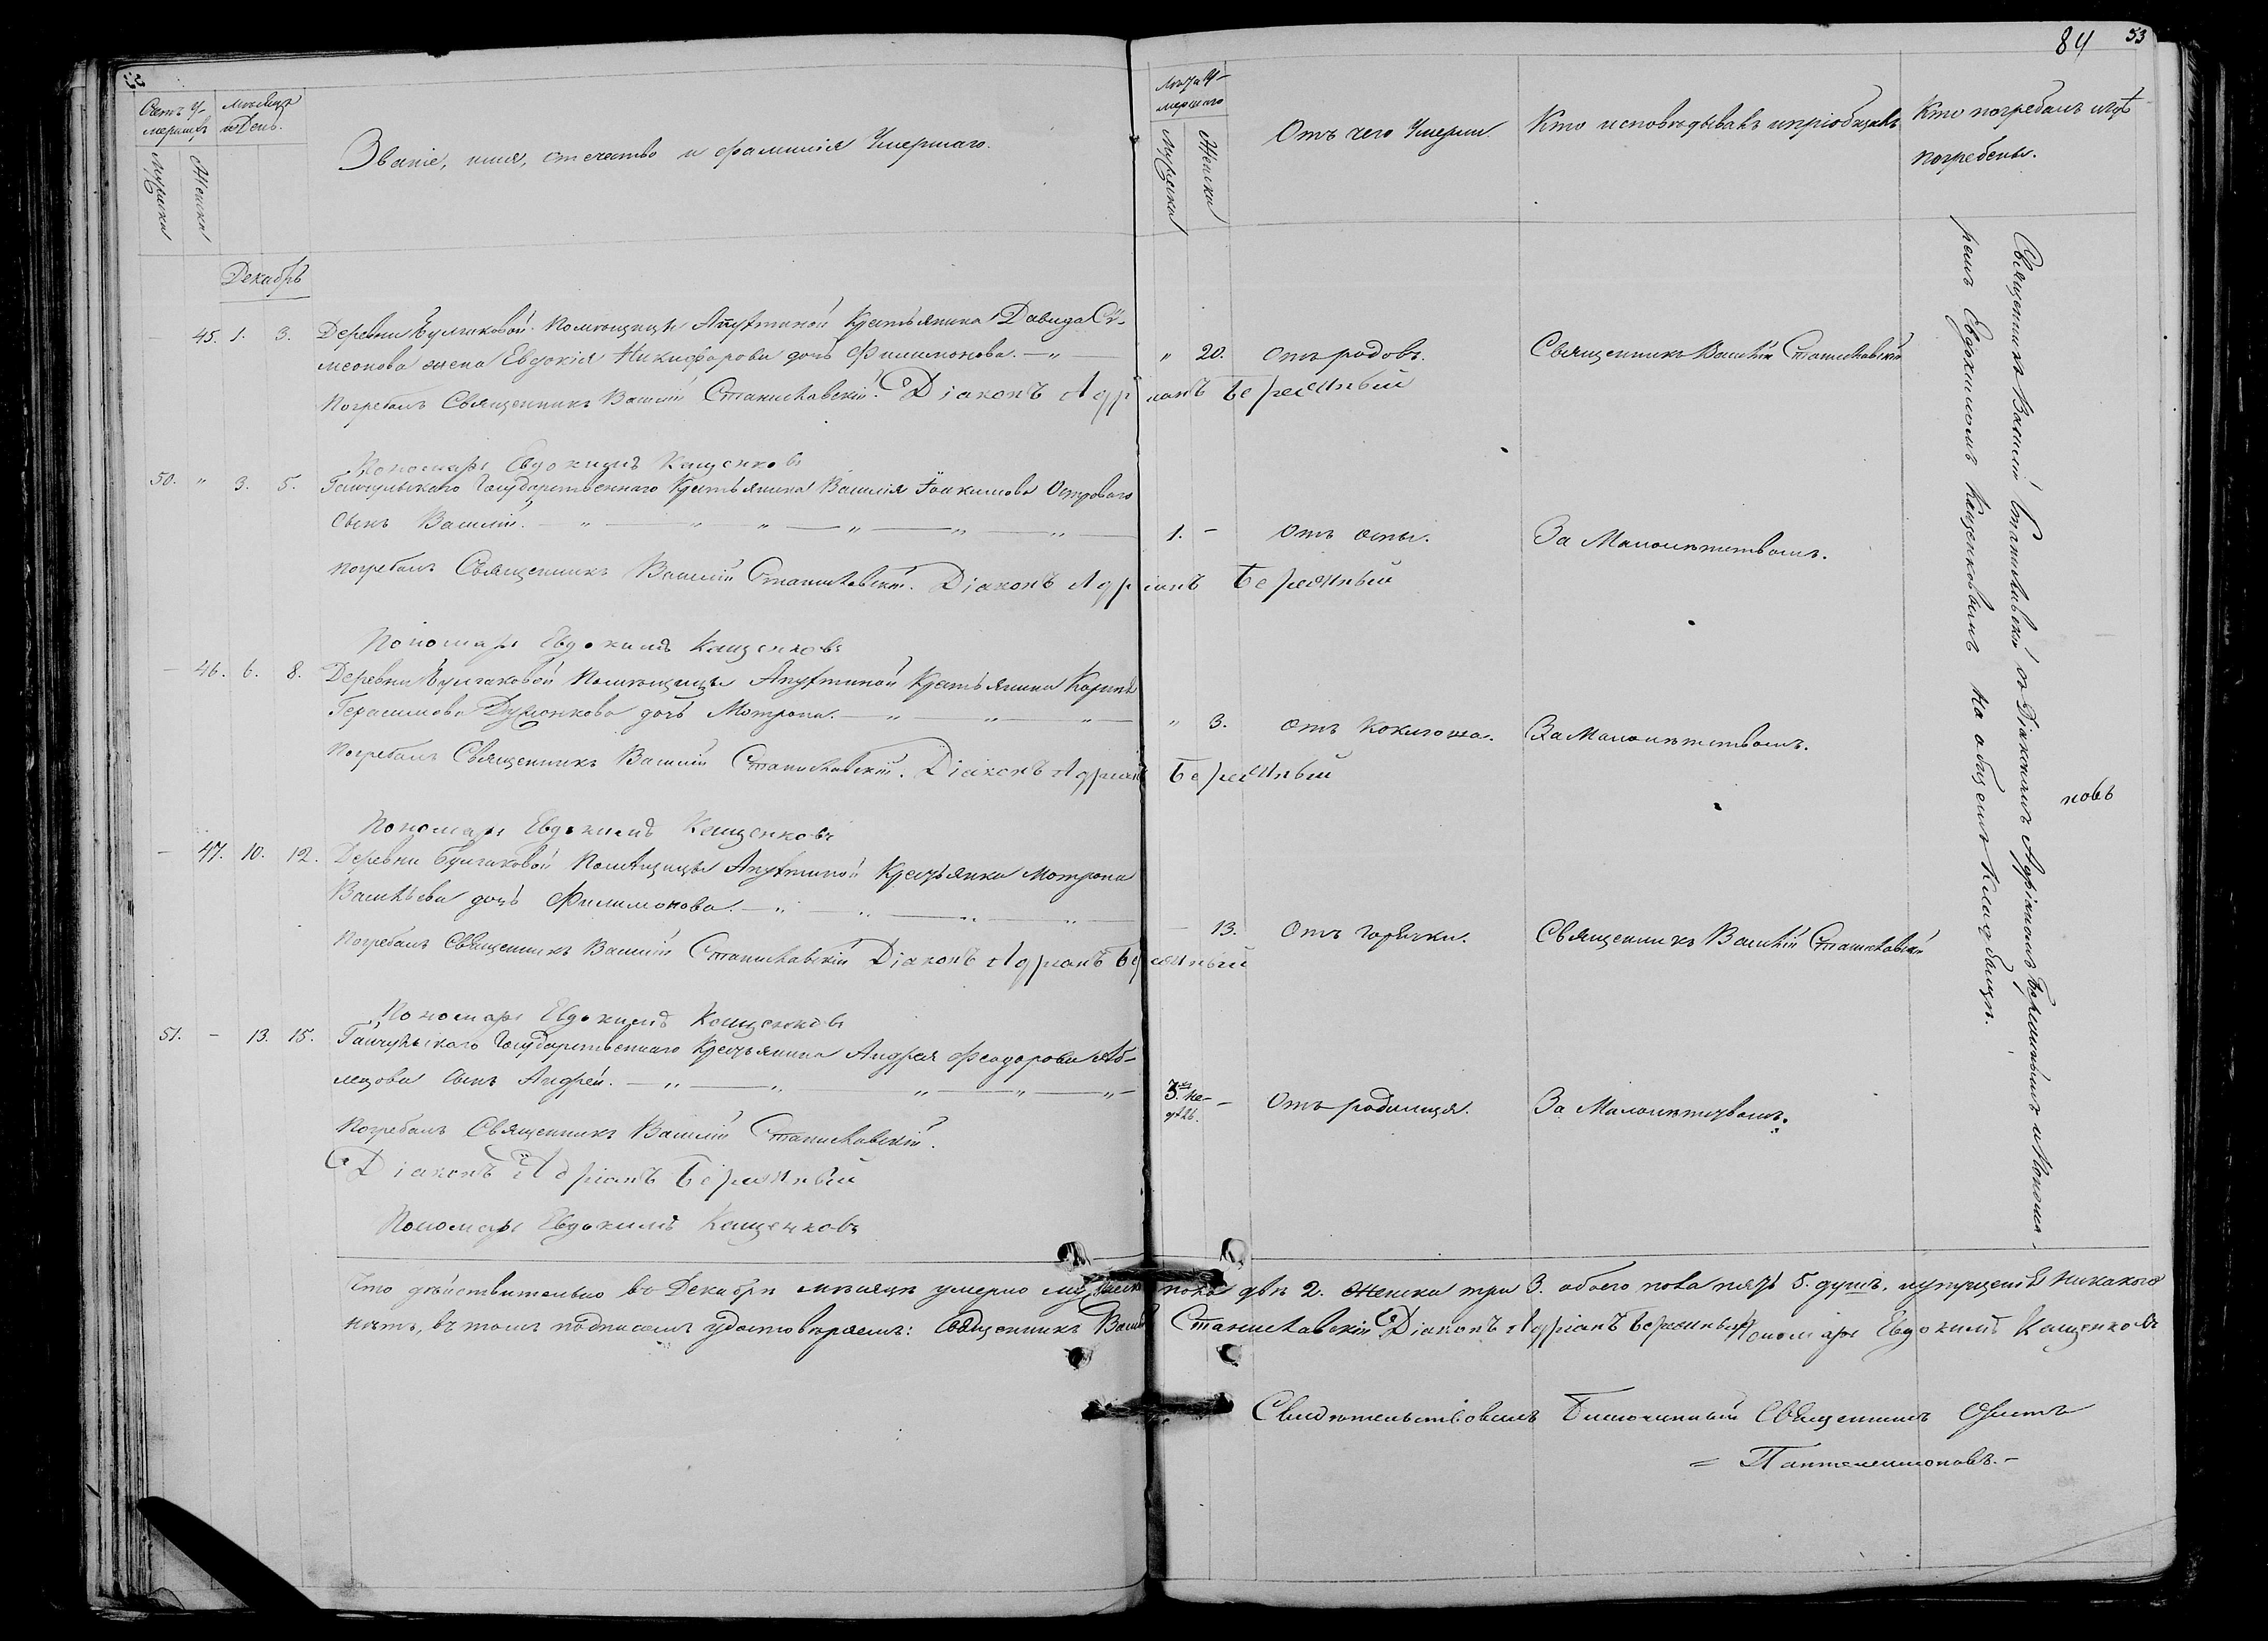 84 53
Счетъ У-
мершихъ
Мѣсяцъ
и День.
Мужеска
Женска
Званіе, имя, отечество и фамилія Умершаго.
Лѣта У-
мершаго
Мужеска
Женска
Отъ чего Умерли.
Кто исповѣдывалъ и пріобщалъ
Кто погребалъ и гдѣ
погребены.
Декабрь
45. 1. 3. Деревни Булгаковой Помѣщицы Апухтиной Крестьянина Давида Си-
меонова жена Евдокія Никифорова дочь Филимонова. " 20. Отъ родовъ. Священникъ Василій Станиславскій
Погребалъ Священникъ Василій Станиславскій. Діаконъ Адріанъ Бережный
Пономарь Евдокимъ Кащенковъ
50. " 3. 5. Гайчульскаго Государственнаго Крестьянина Василія Іоакимова Островаго
сынъ Василій. 1. - Отъ оспы. За Малолѣтствомъ.
Погребалъ Священникъ Василій Станиславскій. Діаконъ Адріанъ Бережный
Пономарь Евдокимъ Кащенковъ
- 46. 6. 8. Деревни Булгаковой Помѣщицы Апухтиной Крестьянина Карпа
Герасимова дочь Мотрона. " 3. Отъ Коклюша. За Малолѣтствомъ.
Погребалъ Священникъ Василій Станиславскій. Діаконъ Адріанъ Бережный
Пономарь Евдокимъ Кащенковъ
- 47. 10. 12. Деревни Булгаковой Помѣщицы Апухтиной Крестьянка Мотрона
Васильева дочь Филимонова. - 13. Отъ горячки. Священникъ Василій Станиславскій
Погребалъ Священникъ Василій Станиславскій Діаконъ Адріанъ Бережный
Пономарь Евдокимъ Кащенковъ
51. - 13. 15. Гайчульскаго Государственнаго Крестьянина Андрея Феодорова
сынъ Андрей. 3. не-
дѣль. - Отъ родимца. За Малолѣтствомъ.
Погребалъ Священникъ Василій Станиславскій.
Діаконъ Адріанъ Бережный
Пономарь Евдокимъ Кащенковъ
Священникъ Василій Станиславскій съ Діакономъ Адріаномъ Бережнымъ и Понома-
ремъ Евдокимомъ Кащенковымъ на общемъ кладбищѣ.
новъ
Что дѣйствительно въ Декабрѣ мѣсяцѣ умерло мужеска пола два 2. женска три 3. обоего пола пять 5. душъ. и упущенія никакого
нѣтъ, въ томъ подписомъ удостовѣряемъ: Священникъ Василій Станиславскій Діаконъ Адріанъ Бережный Пономарь Евдокимъ Кащенковъ
Свидѣтельствовалъ Благочинный Священникъ
= Пантелеимоновъ. -